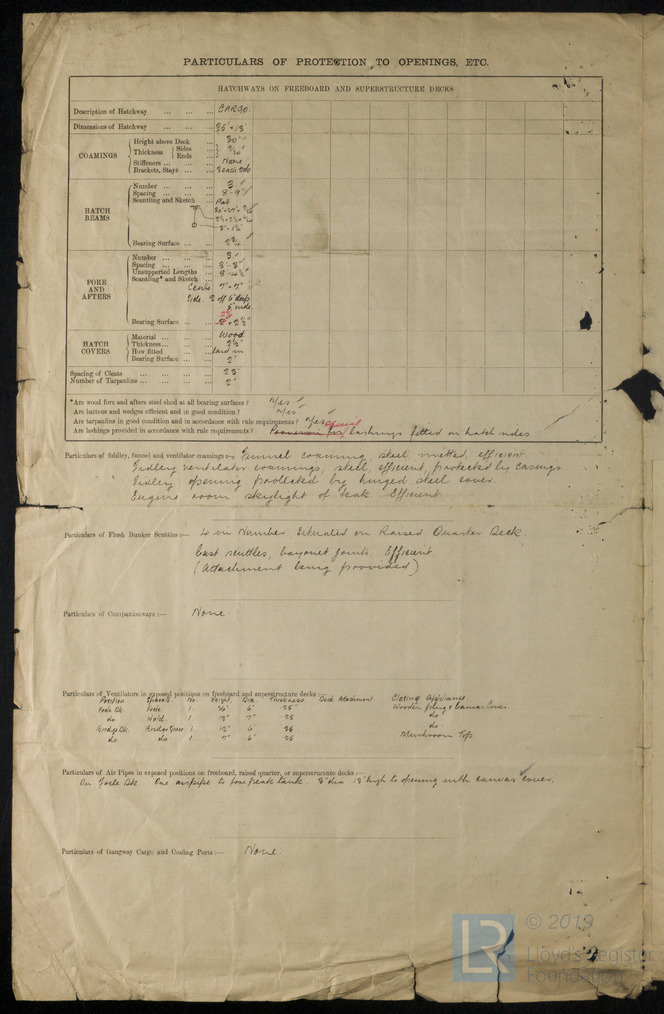 PARTICULARS OF PROTECTION TO OPENINGS, ETC.
HATCHWAYS ON FREEBOARD AND SUPERSTRUCTURE DECKS
Description of Hatchway ... ... ... CARGO.
Dimensions of Hatchway ... ... ... 35' × 18'
COAMINGS
Height above Deck ... 30"
Thickness Sides
Ends
Stiffeners ... ... ... None
Brackets, Stays ... ... 5 each side
HATCH BEAMS
Number ... ... ... 3
Spacing ... ... ... 8'-9"
Scantling and Sketch ... Plate
Bearing Surface ... ... 2¾"
FORE AND AFTERS
Number ... ... ... 3
Spacing ... ... ...
Unsupported Lengths ... 8'-4½"
Scantling* and Sketch ...
Centre 7" × 7"
Side. 2 off 6" deep
5" wide
Bearing Surface ... ... 2½"
HATCH COVERS
Material ... ... ... Wood
Thickness ... ... ... 2½"
How fitted ... ... ... laid in
Bearing Surface ... ... 2"
Spacing of Cleats ... ... ... 23"
Number of Tarpaulins ... ... ... 2
*Are wood fore and afters steel shod at all bearing surfaces? Yes
Are battens and wedges efficient and in good condition? Yes
Are tarpaulins in good condition and in accordance with rule requirements? Yes
Are lashings provided in accordance with rule requirements? Provision for lashings fitted on hatch sides
Particulars of fiddley, funnel and ventilator coamings:— Funnel coaming steel, efficient
Fidley ventilator coamings, steel, efficient, protected by casings
Fidley opening protected by hinged steel cover.
Engine room skylight of teak. Efficient
Particulars of Flush Bunker Scuttles:— 4 in Number Situated on Raised Quarter Deck.
Cast scuttles, bayonet joints. Efficient
(Attachment being provided)
Particulars of Companionways:— None.
Particulars of Ventilators in exposed positions on freeboard and superstructure decks:—
Position Spaces. No. Height. Dia. Thickness. Deck Attachment. Closing Appliance.
Focle Dk. Focle. 1. 6" Wooden plug & Canvas Cover.
do. Hold. 1. 12" 7" 26 do
Bridge Dk. Bridge Space 1 12" 6" 26 do.
do do 1 7" 6" 26 Mushroom Top
Particulars of Air Pipes in exposed positions on freeboard, raised quarter, or superstructure decks:—
On Focle Dk One airpipe to fore peak tank. 3" dia 18" high to opening with canvas cover.
Particulars of Gangway Cargo and Coaling Ports:— None.
LR
© 2019
Lloyd's Register
Foundation